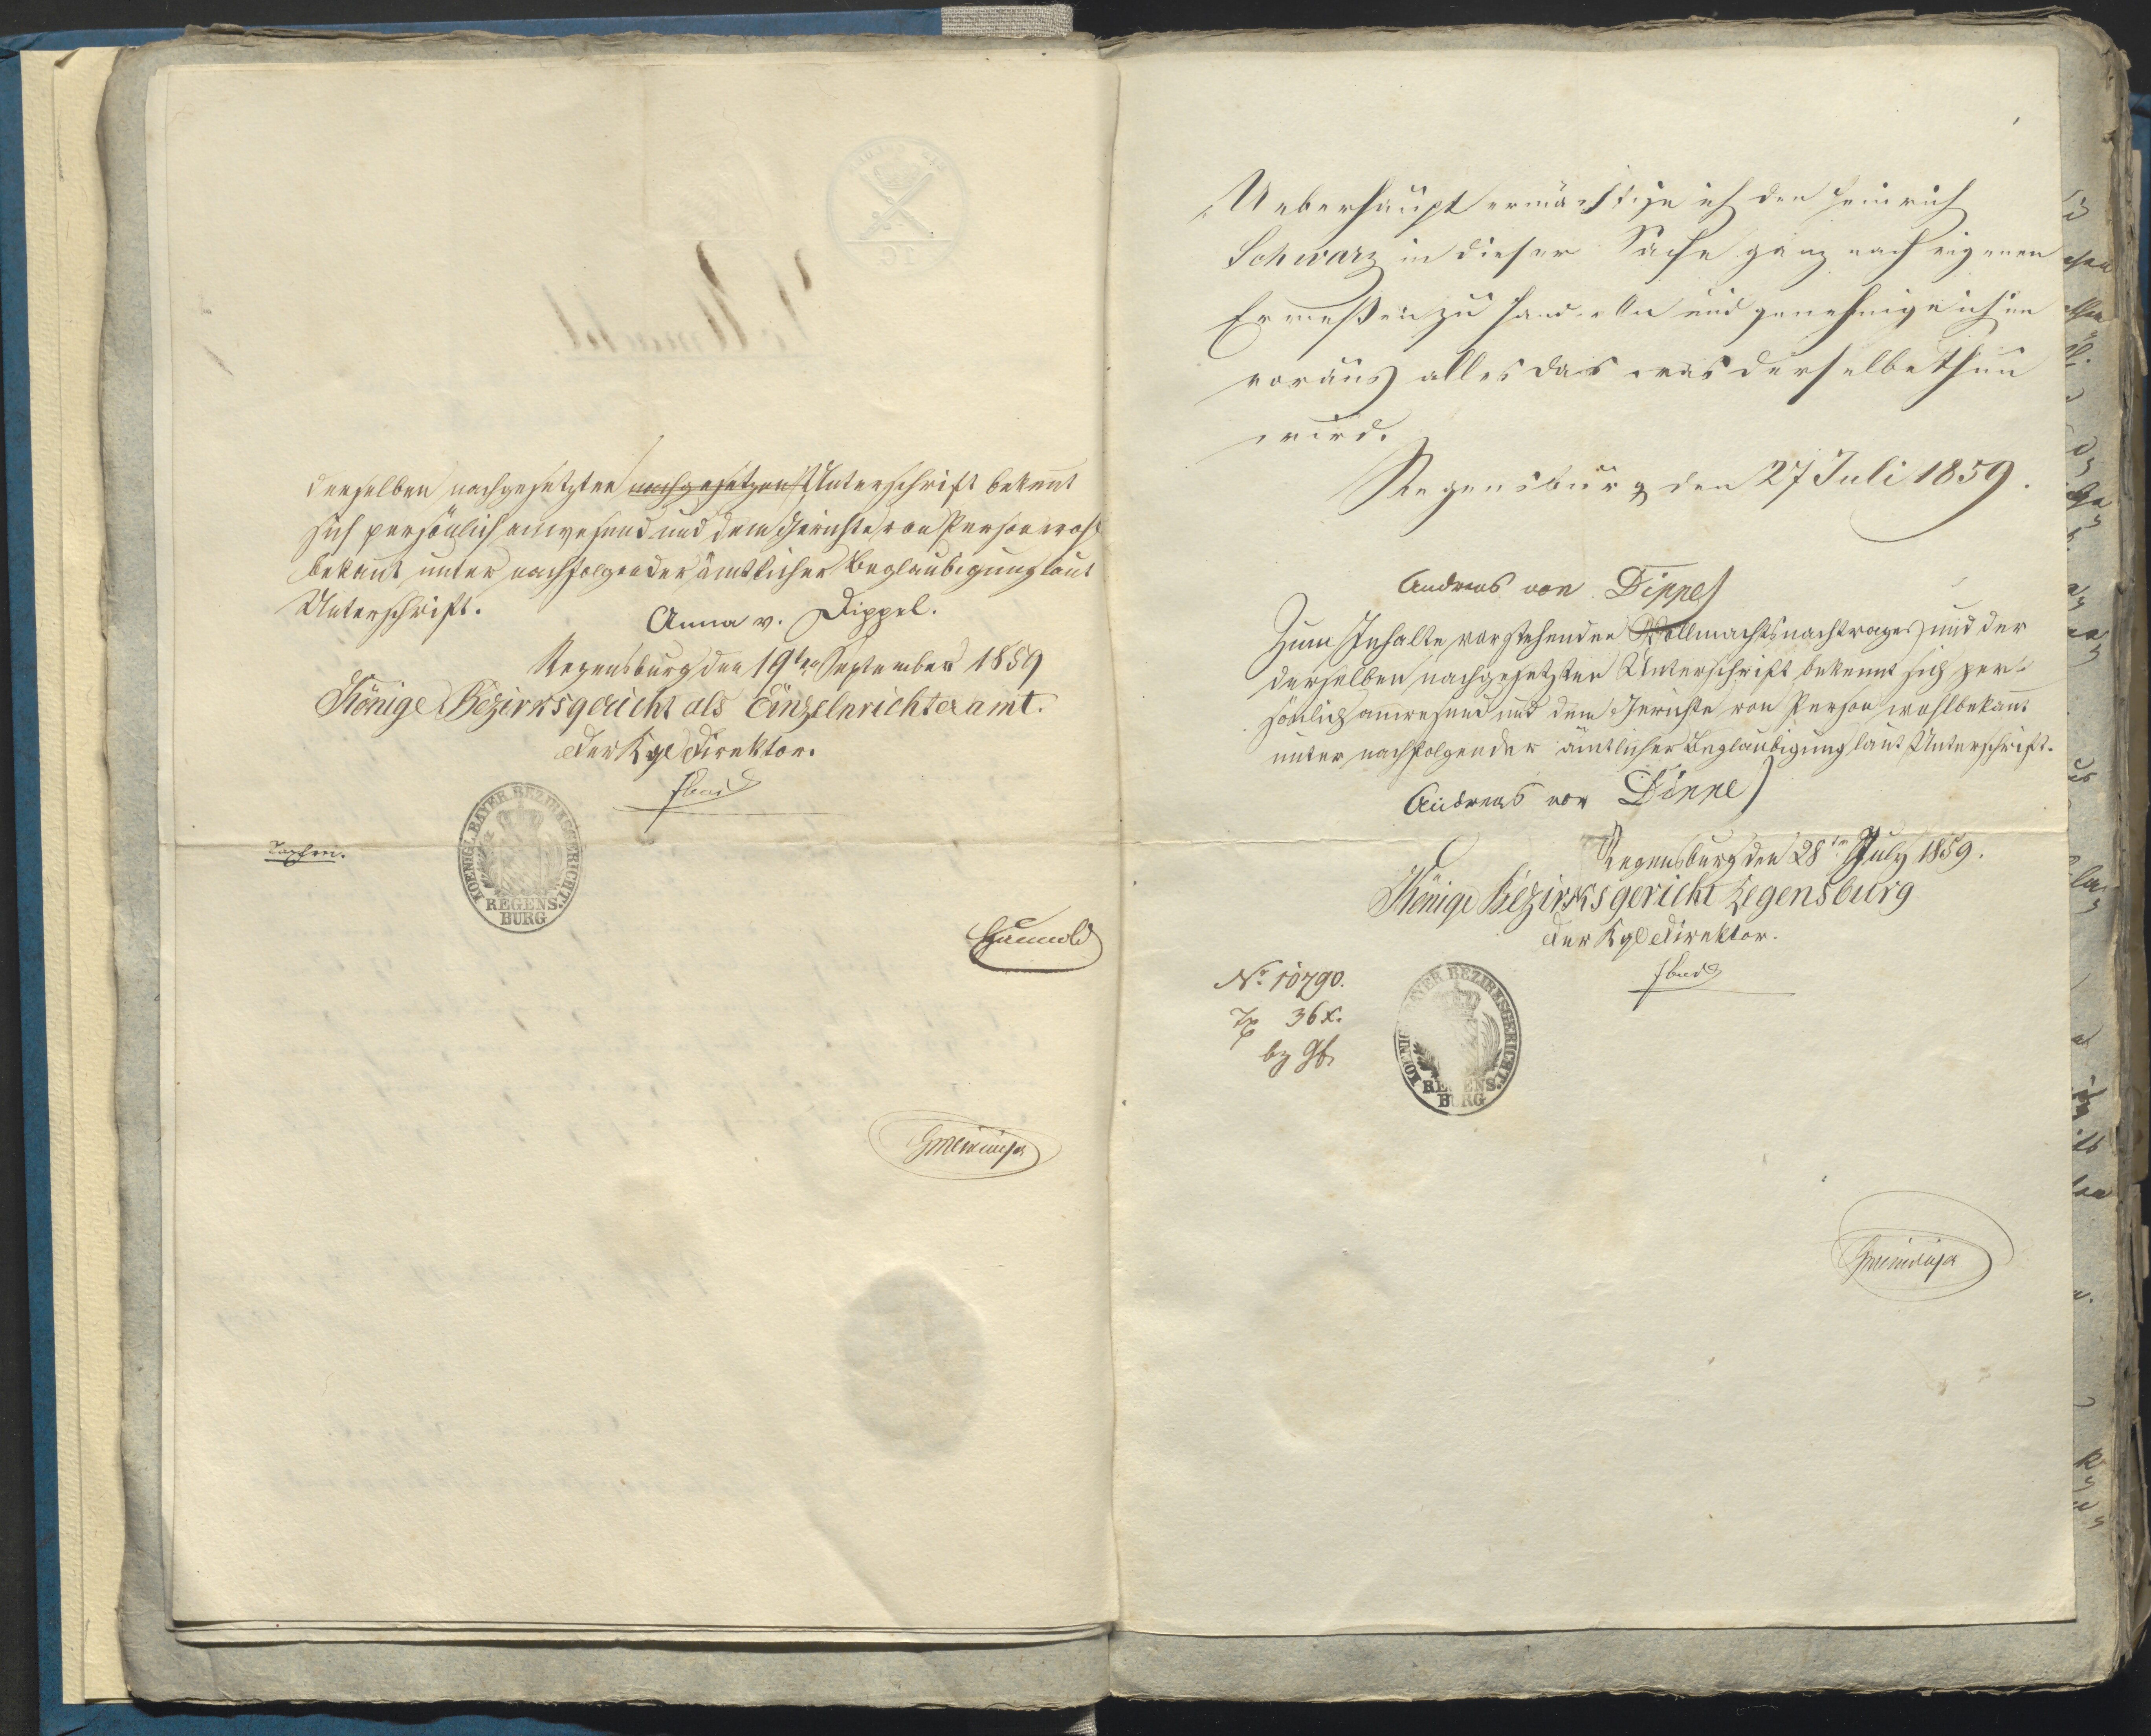 derselben nachgesetzten nachgesetzen Unterschrift bekennt
sich persönlich anwesend und dem Gerichte von Person wohl
bekannt unter nachfolgender ämtlicher Beglaubigung laut
Unterschrift.
Anna v. Dippel.
Regensburg den 19ten September 1859
Königl Bezirksgericht als Einzelnrichteramt.
Der Kgl Direktor.
KOENIGL. BAYER. BEZIRKSGERICHT.
REGENS-
BURG
Taxfrei.
Ueberhaupt ermächtige ich den Heinrich
Schwarz in dieser Sache ganz nach eigenen
Ermeßen zu handeln und genehmige ich im
voraus alles das was derselbe thun
wird.
Regensburg den 27 Juli 1859.
Andreas von Dippel
Zum Inhalte vorstehenden Vollmachtsnachtrages und der
derselben nachgesetzten Unterschrift bekennt sich per-
sönlich anwesend und dem Gerichte von Person wohlbekannt
unter nachfolgender ämtlicher Beglaubigung laut Unterschrift.
Andreas von Dippel
Regensburg den 28ten July 1859.
Königl Bezirksgericht Regensburg
Der Kgl Direktor.
No. 10790.
36 x.
KOENIGL. BAYER. BEZIRKSGERICHT.
REGENS-
BURG